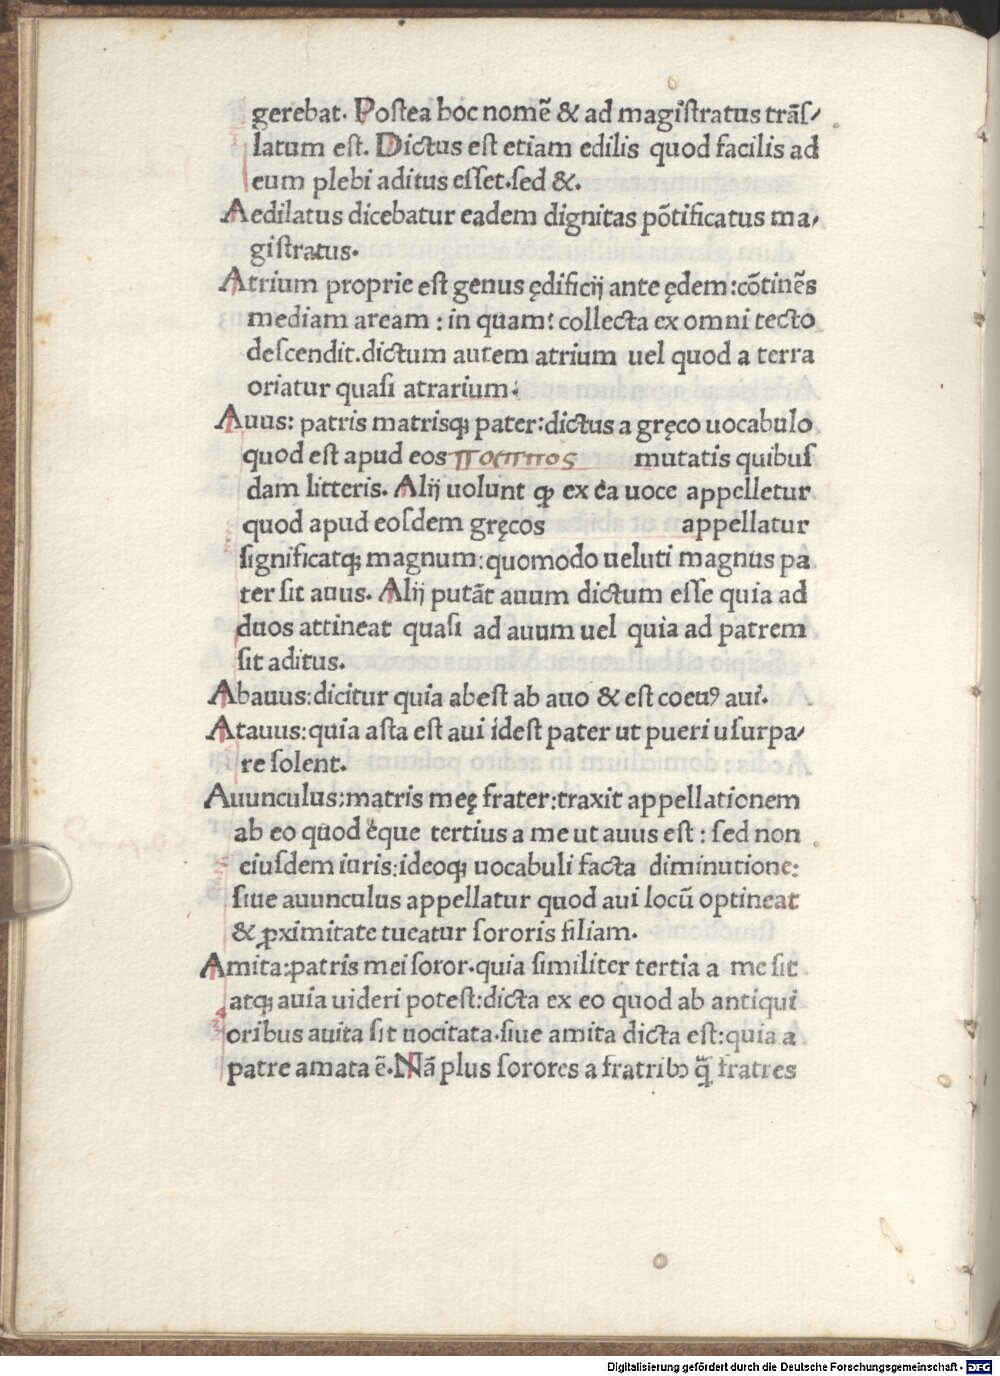 gerebat. Poſtea hoc nomē & ad magiſtratus trāſ⸗
latum eſt. Dictus eſt etiam edilis quod facilis ad
eum plebi aditus eſſet.ſed &.
Aedilatus dicebatur eadem dignitas pōtificatus ma⸗
giſtratus.
Atrium proprie eſt genus ędificij ante ędem:cōtinēs
mediam aream : in quam: collecta ex omni tecto
deſcendit.dictum autem atrium uel quod a terra
oriatur quaſi atrarium:
Auus: patris matrisqꝫ pater:dictus a gręco uocabulo
quod eſt apud eos παππος mutatis quibuſ
dam litteris. Alij uolunt ꝙ ex ea uoce appelletur
quod apud eoſdem gręcos appellatur
ſignificatqꝫ magnum:quomodo ueluti magnus pa
ter ſit auus. Alij putāt auum dictum eſſe quia ad
duos attineat quaſi ad auum uel quia ad patrem
ſit aditus.
Abauus:dicitur quia abeſt ab auo & eſt coeuꝰ aui.
Atauus:quia aſta eſt aui ideſt pater ut pueri uſurpa⸗
re ſolent.
Auunculus:matris meę frater:traxit appellationem
ab eo quod ęque tertius a me ut auus eſt : ſed non
eiuſdem iuris:ideoqꝫ uocabuli facta diminutione:
ſiue auunculus appellatur quod aui locū optineat
& ꝓximitate tueatur ſororis filiam.
Amita:patris mei ſoror.quia ſimiliter tertia a me ſit
atqꝫ auia uideri poteſt:dicta ex eo quod ab antiqui
oribus auita ſit uocitata.ſiue amita dicta eſt:quia a
patre amata ē.Nā plus ſorores a fratribꝰ q̄ fratres
Digitalisierung gefördert durch die Deutsche Forschungsgemeinschaft - DFG